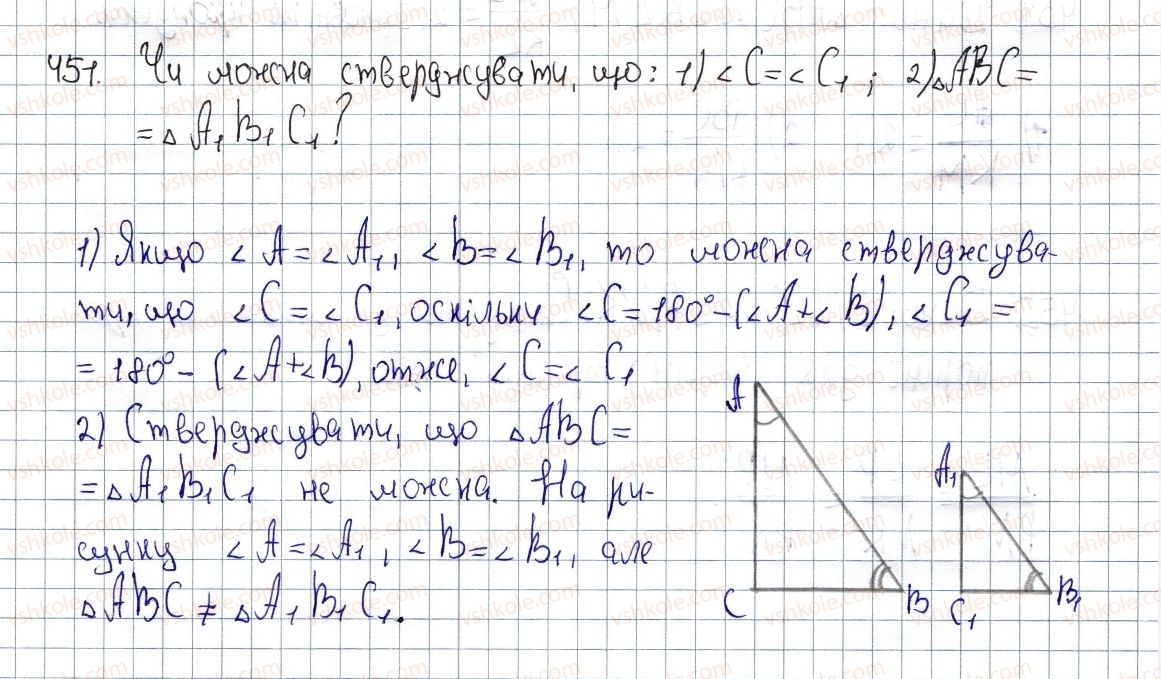 451. Чи можна стверджувати, що: 1) ∠C = ∠C₁; 2) △ABC =
= △A₁B₁C₁?
1) Якщо ∠A = ∠A₁, ∠B = ∠B₁, то можна стверджува-
ти, що ∠C = ∠C₁, оскільки ∠C = 180° - (∠A + ∠B), ∠C₁ =
= 180° - (∠A + ∠B), отже, ∠C = ∠C₁
2) Стверджувати, що △ABC =
= △A₁B₁C₁ не можна. На ри-
сунку ∠A = ∠A₁, ∠B = ∠B₁, але
△ABC ≠ △A₁B₁C₁.
A
C
B
A₁
C₁
B₁
vshkole.com